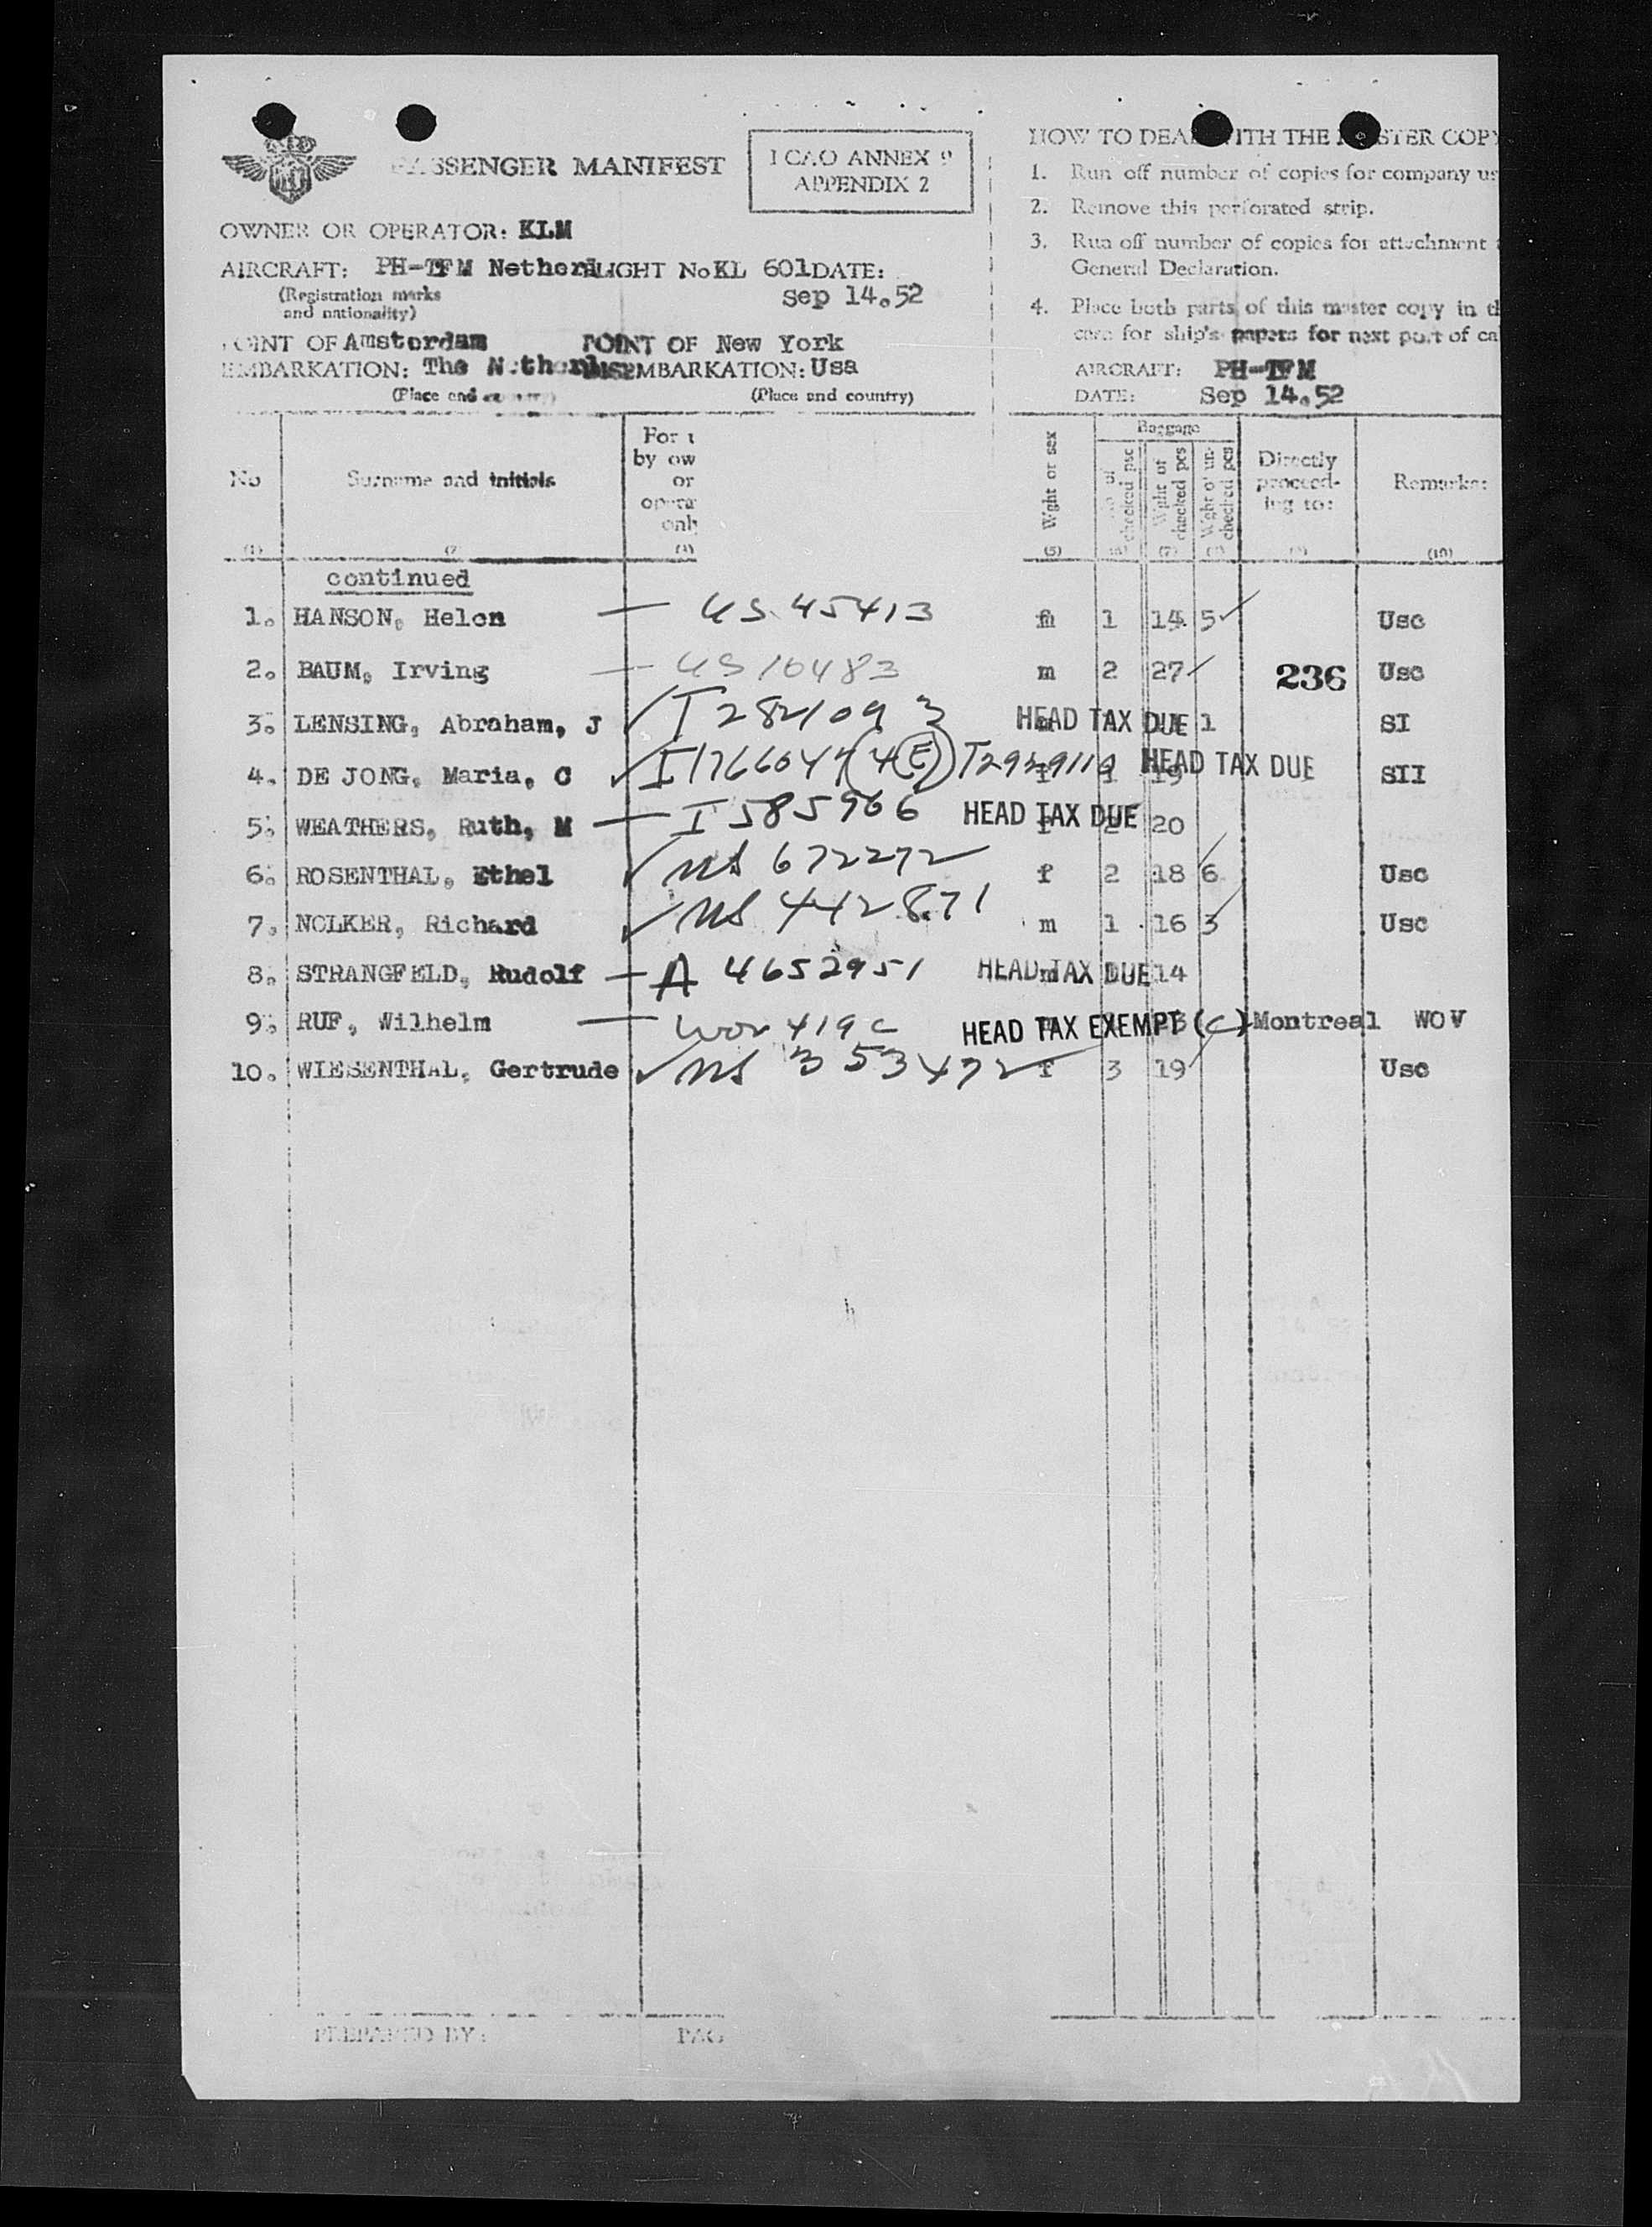 PASSENGER MANIFEST
I CAO ANNEX 9
APPENDIX 2
OWNER OR OPERATOR: KLM
AIRCRAFT: PH-TFM FLIGHT No KL 601 DATE:
(Registration marks
and nationality)
Sep 14.52
POINT OF Amsterdam POINT OF New York
EMBARKATION: The DISEMBARKATION: Usa
(Place and (Place and country)
HOW TO DEAL WITH THE MASTER COPY
1. Run off number of copies for company us
2. Remove this perforated strip.
3. Run off number of copies for attachment
General Declaration.
4. Place both parts of this master copy in th
case for ship's papers for next port of ca
AIRCRAFT: PH-TFM
DATE: Sep 14.52
No Surname and initials For u by ow or opera only Wght or sex Baggage checked psc Wght of checked pcs Wght of un-checked pcs Directly proceed-ing to: Remarks:
(1) (2) (5) (7) (10)
continued
1. HANSON, Helen — US 45413 1 14 5 Usc
2. BAUM, Irving — US 10483 m 2 27 236 Usc
3. LENSING, Abraham, J I 2821093 HEAD TAX DUE 1 SI
4. DE JONG, Maria, C (E) HEAD TAX DUE 19 SII
5. WEATHERS, Ruth, M — I 585966 HEAD TAX DUE 20
6. ROSENTHAL, Ethel US 672272 f 2 18 6 Usc
7. NOLKER, Richard US 442871 m 1 16 3 Usc
8. STRANGFELD, Rudolf — A 4652951 HEAD TAX DUE 14
9. RUF, Wilhelm — wov 419 c HEAD TAX EXEMPT (C) Montreal WOV
10. WIESENTHAL, Gertrude US 353472 f 3 19 Usc
PREPARED BY: PAG